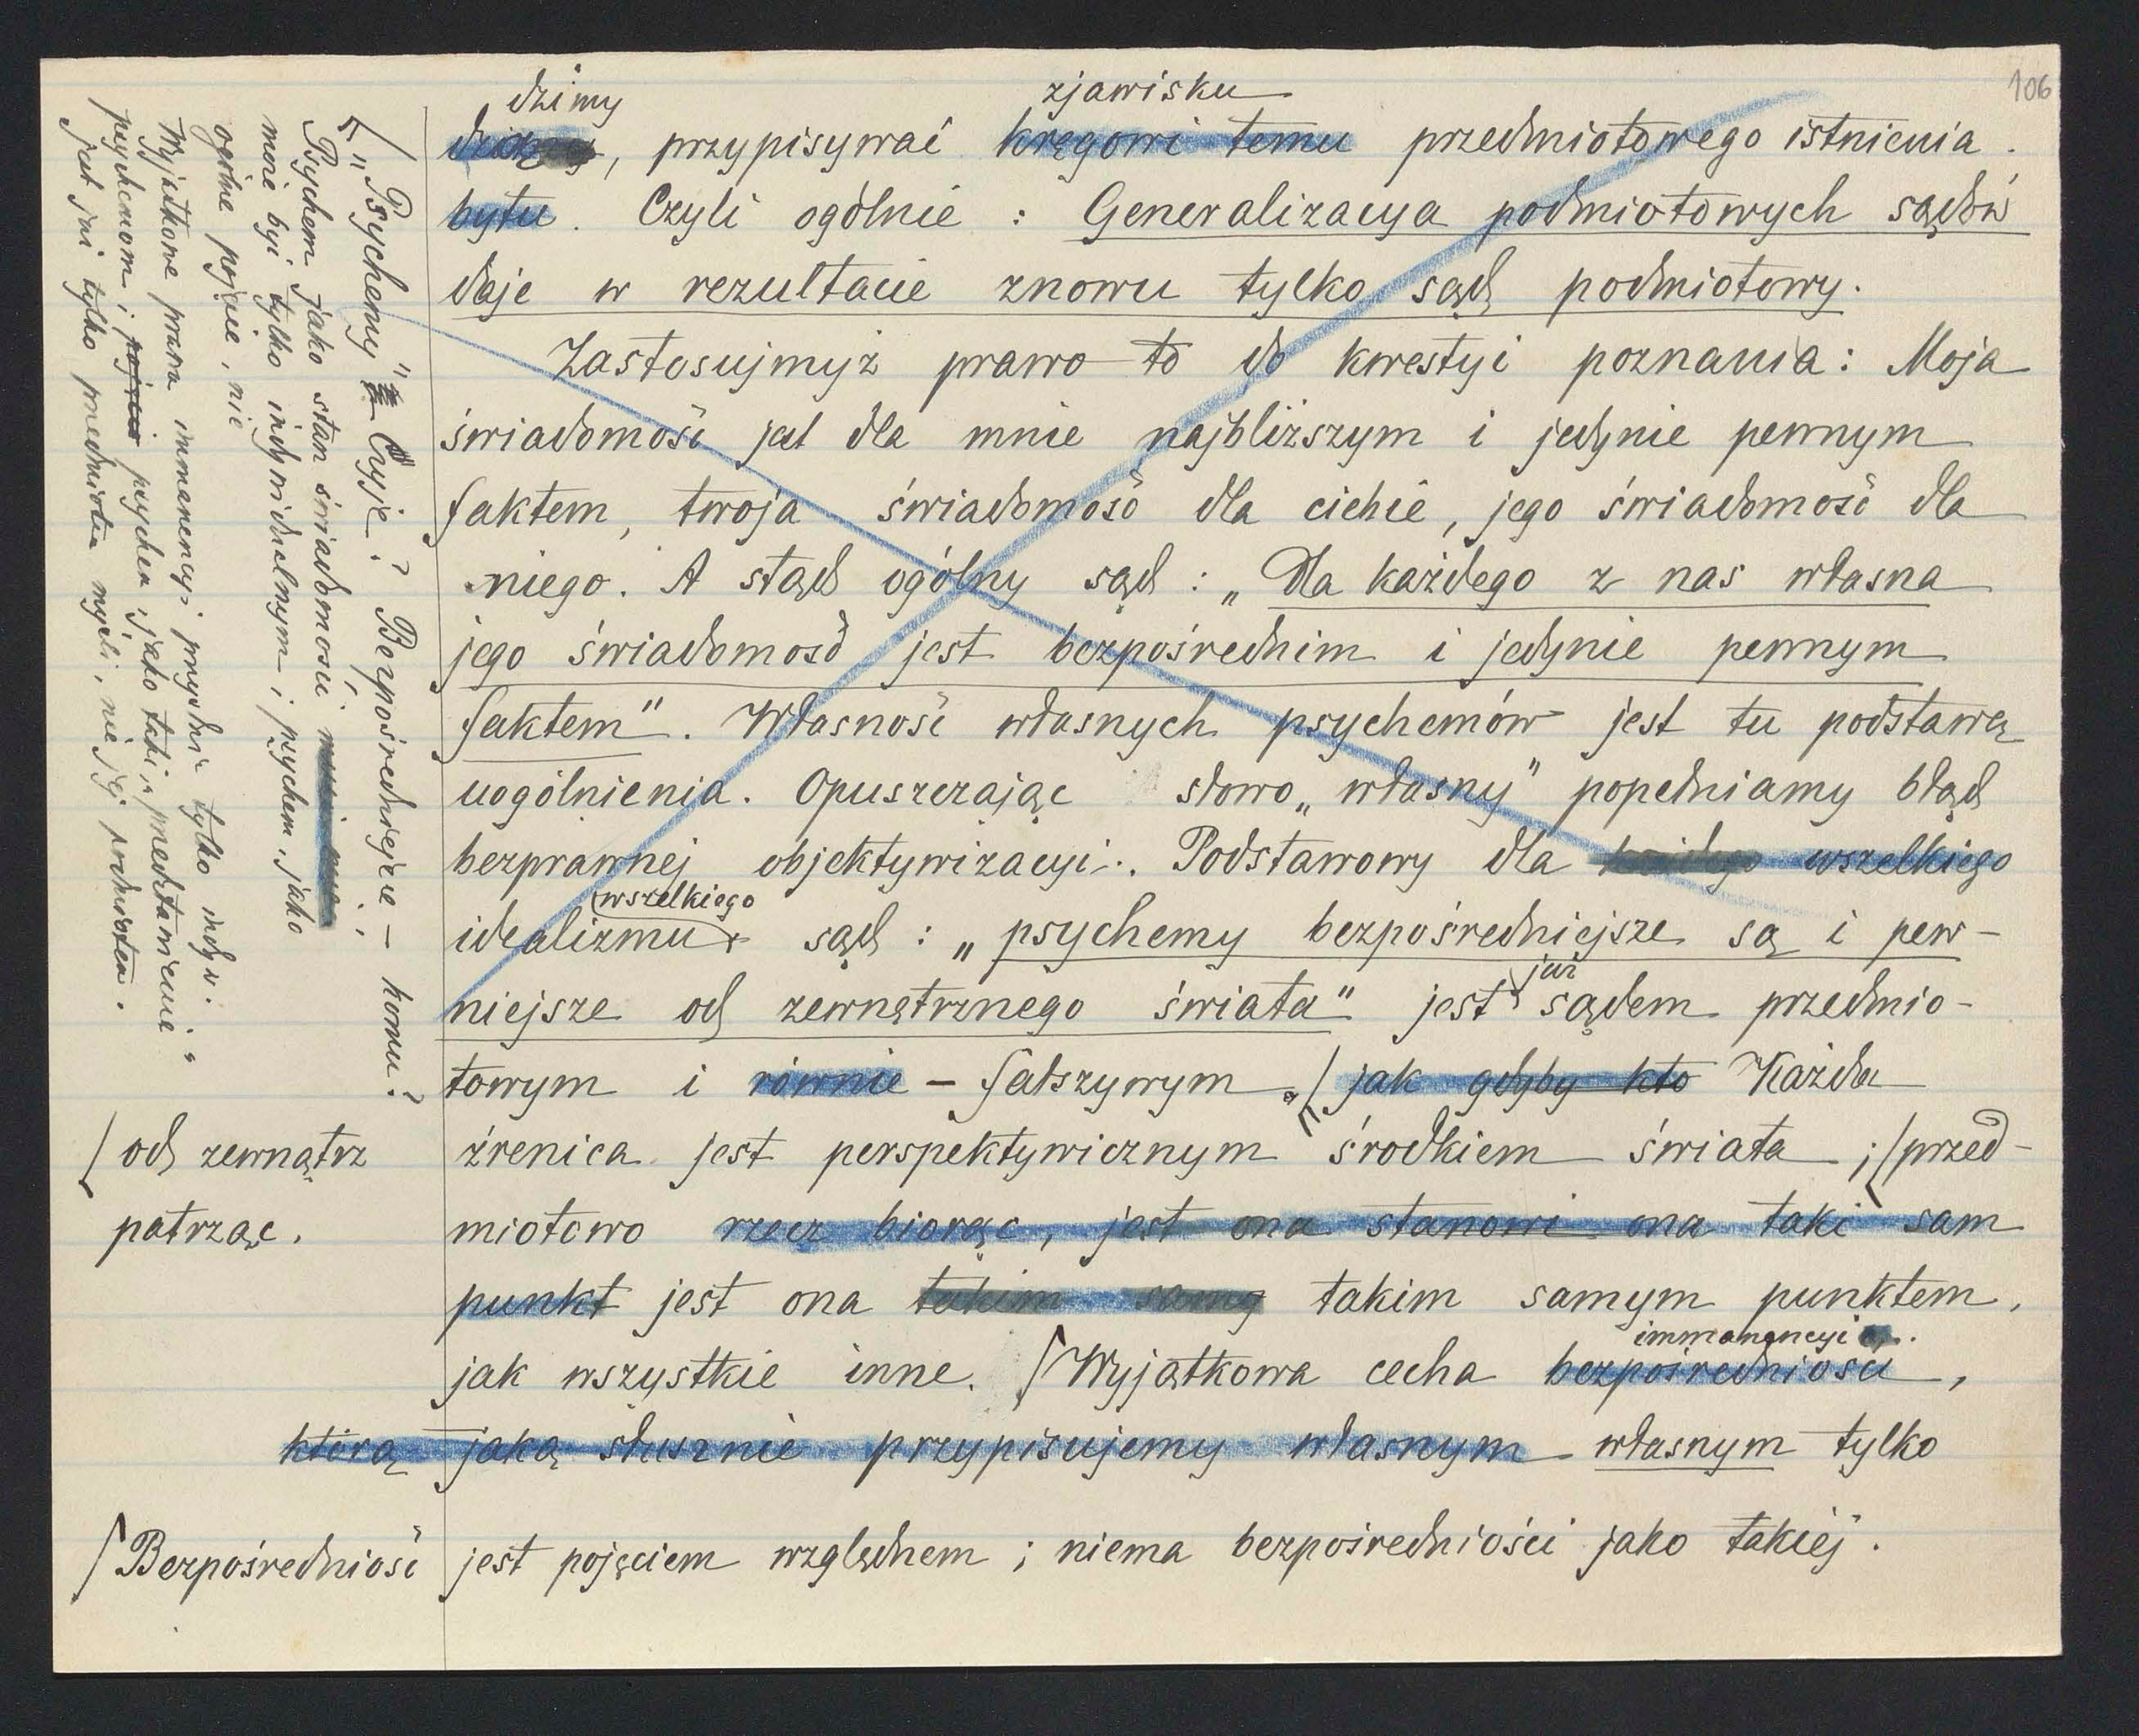 106
dzimy zjawisku
widzimy, przypisywać kręgowi temu przedmiotowego istnienia.
bytu. Czyli ogólnie: Generalizacya podmiotowych sądów
daje w rezultacie znowu tylko sąd podmiotowy.
Zastosujmyż prawo to do kwestyi poznania: Moja
świadomość jest dla mnie najbliższym i jedynie pewnym
faktem, twoja świadomość dla ciebie, jego świadomość dla
niego. A stąd ogólny sąd: „Dla każdego z nas własna
jego świadomość jest bezpośrednim i jedynie pewnym
faktem". Własność własnych psychemów jest tu podstawą
uogólnienia. Opuszczając słowo „własny" popełniamy błąd
bezprawnej objektywizacyi. Podstawowy dla każdego wszelkiego
wszelkiego
idealizmu sąd: „psychemy bezpośredniejsze są i pew-
już
niejsze od zewnętrznego świata" jest sądem przedmio-
towym i równie - fałszywym. / jak gdyby kto Każda
źrenica jest perspektywicznym środkiem świata; /przed-
miotowo rzecz biorąc, jest ona stanowi ona taki sam
punkt jest ona takim samym punktem,
immanencyi
jak wszystkie inne. / Wyjątkowa cecha bezpośredniości,
którą jaką słusznie przypisujemy własnym własnym tylko
/ Bezpośredniość jest pojęciem względnem; niema bezpośredniości jako takiej.
/ od zewnątrz
patrząc.
/ „Psychemy" Czyje? Bezpośredniejsze - komu?
Psychem jako stan świadomości
może być tylko indywidualnym; psychem, jako
ogólne pojęcie, nie
Wyjątkowe prawa immanencyi przysłuż. tylko indyw.
psychemom; pojęcie psychem, jako takie, „przedstawienie"
jest już tylko przedmiotem myśli, nie jej podmiotem.